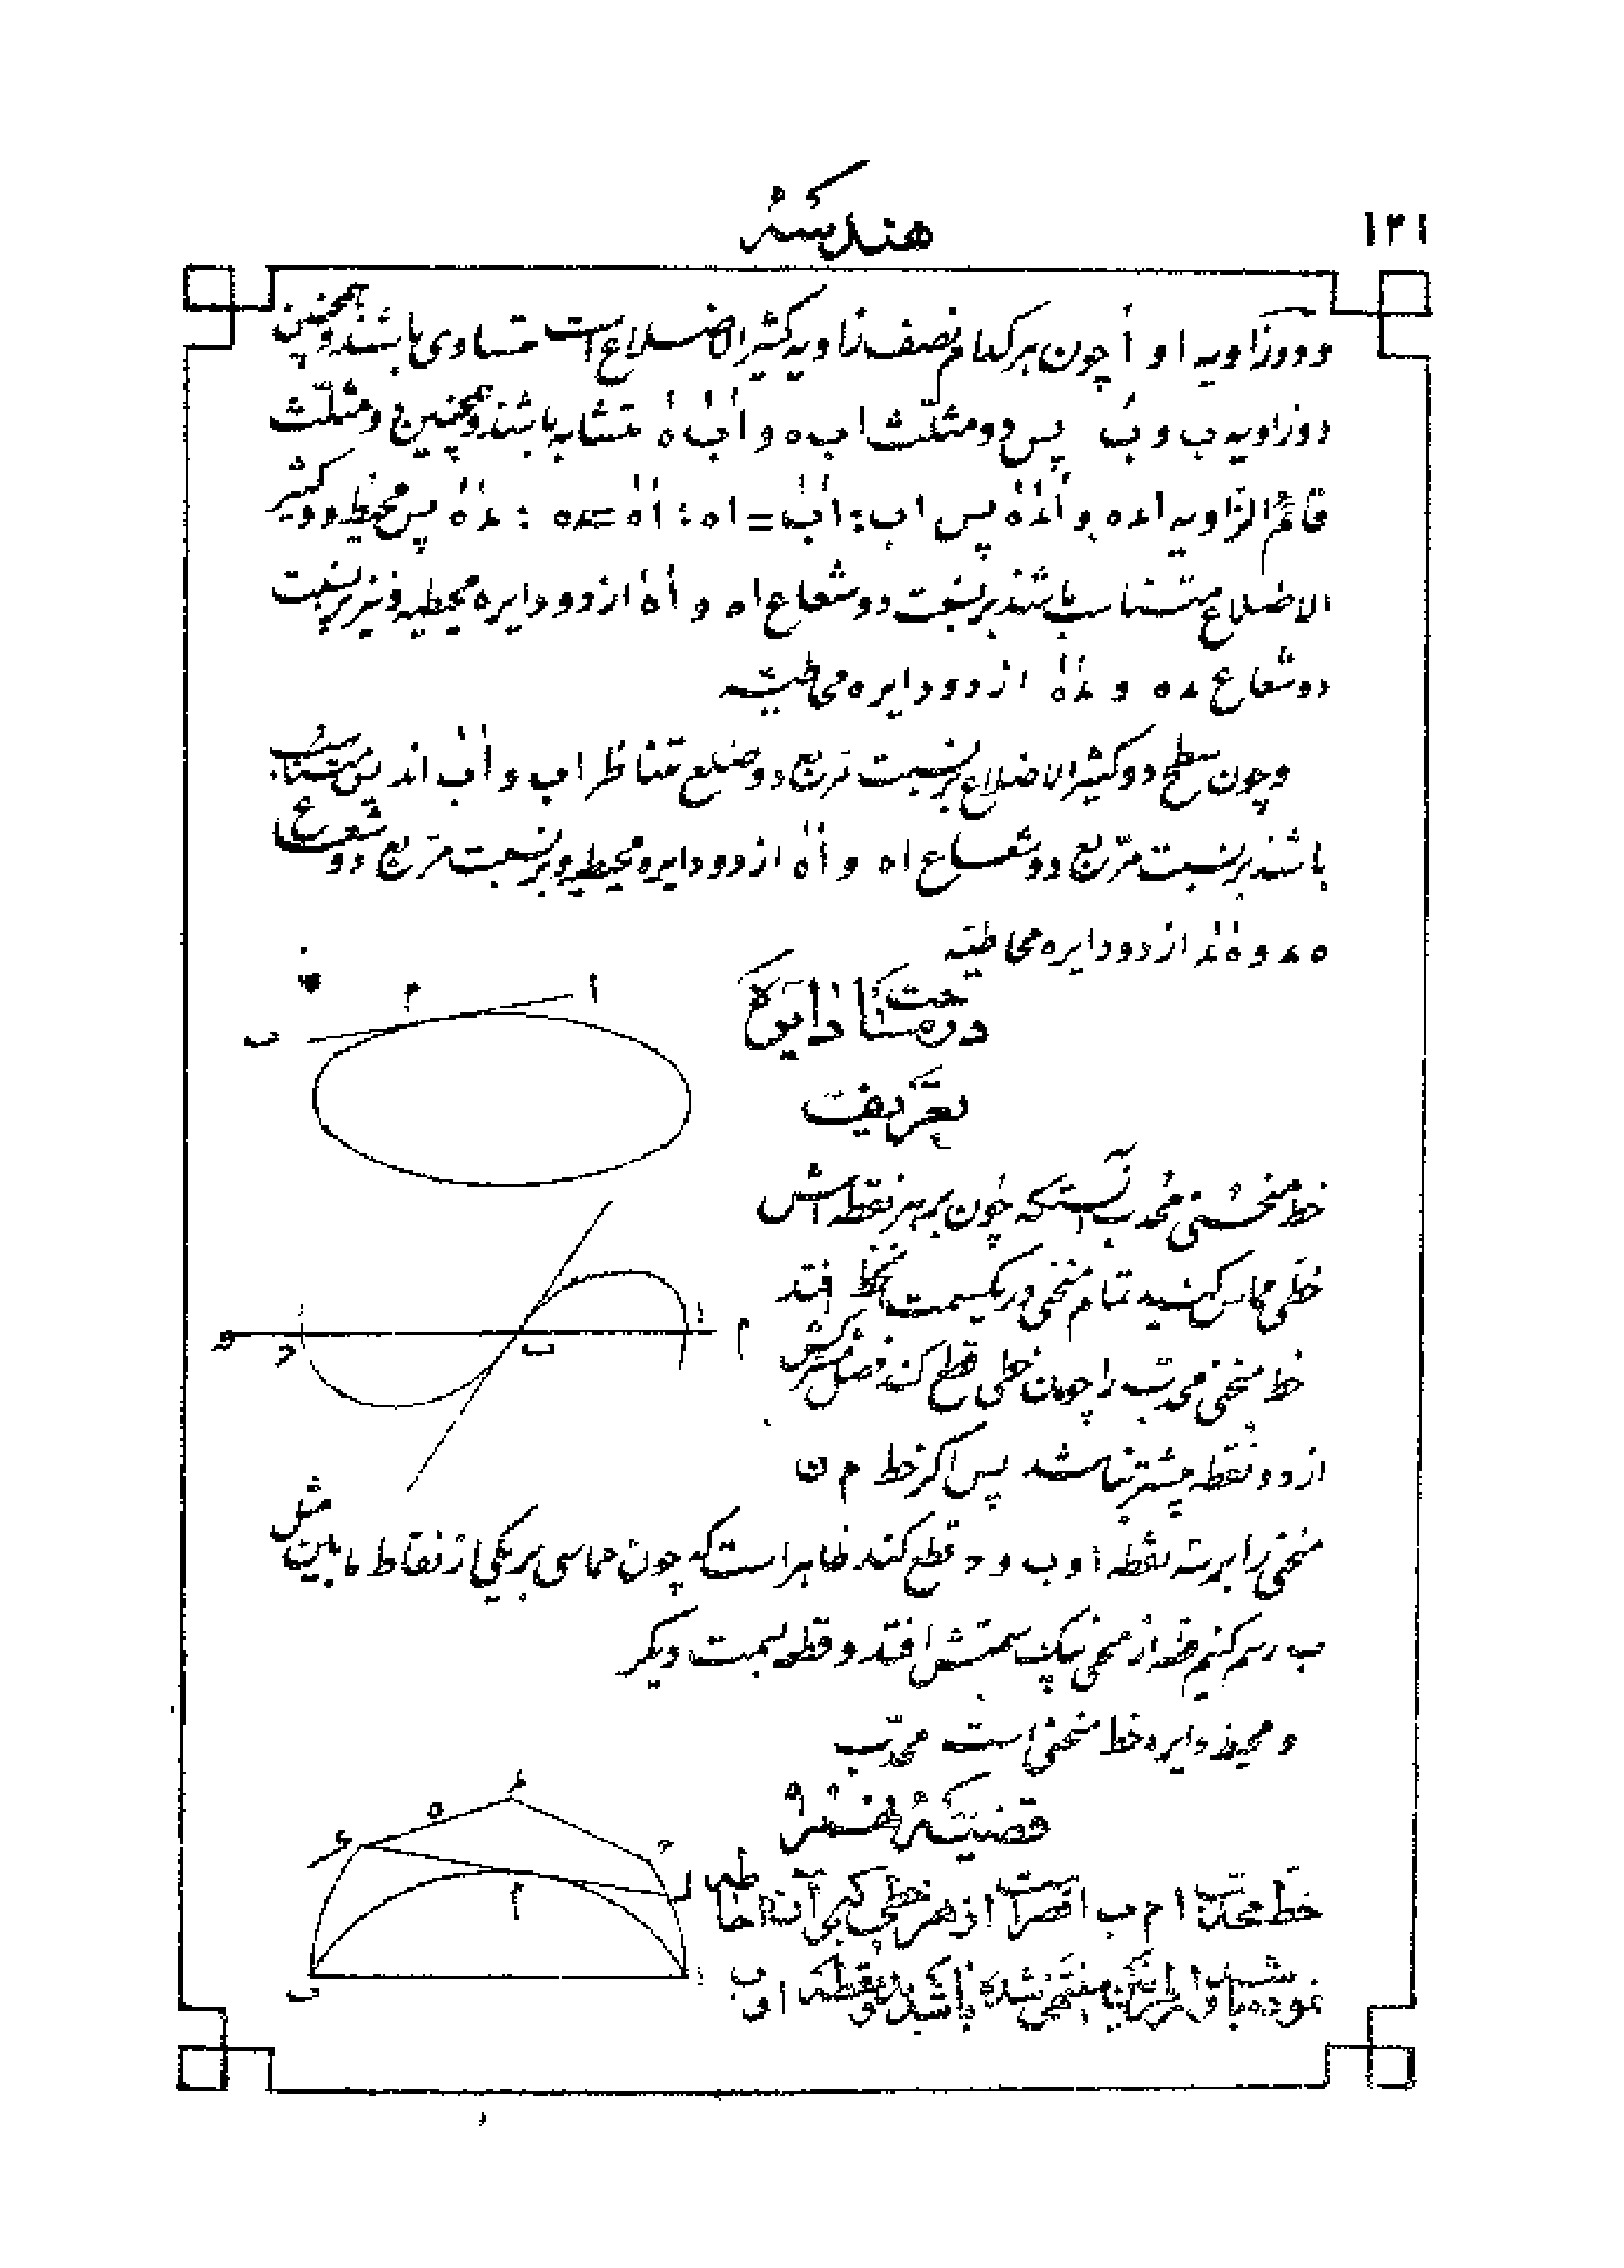 ۱۲۱
هندسه
و دو زاویه ا و اَ چون هر کدام نصف زاویه کثیرالاضلاع است متساوی باشند و همچنین
دو زاویه ب و بَ پس دو مثلّث اب ه و اَبَ هَ متشابه باشند و همچنین دو مثلّث
قائم الزاویه اده و اَدَهَ پس اب : اَبَ = اه : اَهَ = ده : دَهَ پس محیط دو کثیر
الاضلاع متناسب باشند بر نسبت دو شعاع اه و اَهَ از دو دایره محیطیه و نیز بر نسبت
دو شعاع ده و دَهَ از دو دایره محاطیّه
و چون سطح دو کثیر الاضلاع بر نسبت مربع دو ضلع متناظر اب و اَبَ اند پس متناسب
باشند بر نسبت مربع دو شعاع اه و اَهَ از دو دایره محیطیه و بر نسبت مربع دو شعاع
ه د و هَ دَ از دو دایره محاطیّه
در مساحت دایره
تعریف
خط منحنی محدب آنستکه چون بر هر نقطه اش
خطی مماس کنید تمام منحنی در یکسمت خط افتد
خط منحنی محدّب را چون خطی قطع کند فصل مشترکش
از دو نقطه بیشتر نباشد پس اگر خط م ن
منحنی را بر سه نقطه ا و ب و د قطع کند ظاهر است که چون مماسی بر یکی از نقاط مابین مثل
ب رسم کنیم قطعه از منحنی بیک سمتش افتد و قطعه بسمت دیگر
و محیط دایره خط منحنی است محدّب
قضیّه
خطّ محدّب ا م ب اقصر است از هر خطی که بر آن احاطه
نموده باشد و از طرفین منتهی شده باشد بدو نقطه ا و ب
ا
م
ب
م
ا
ب
د
د
ه
م
ا
ب